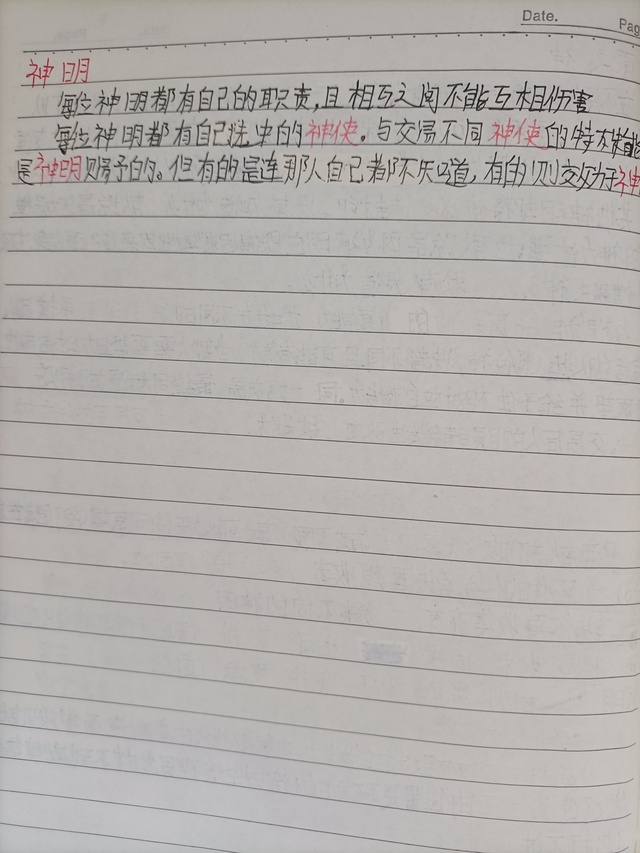 Date.
Pag
神明
每位神明都有自己的职责,且相互之间不能互相伤害
每位神明都有自己选中的神使。与交易不同神使的特不能
是神明赐予的。但有的是连那人自己都不知道,有的则交好于神